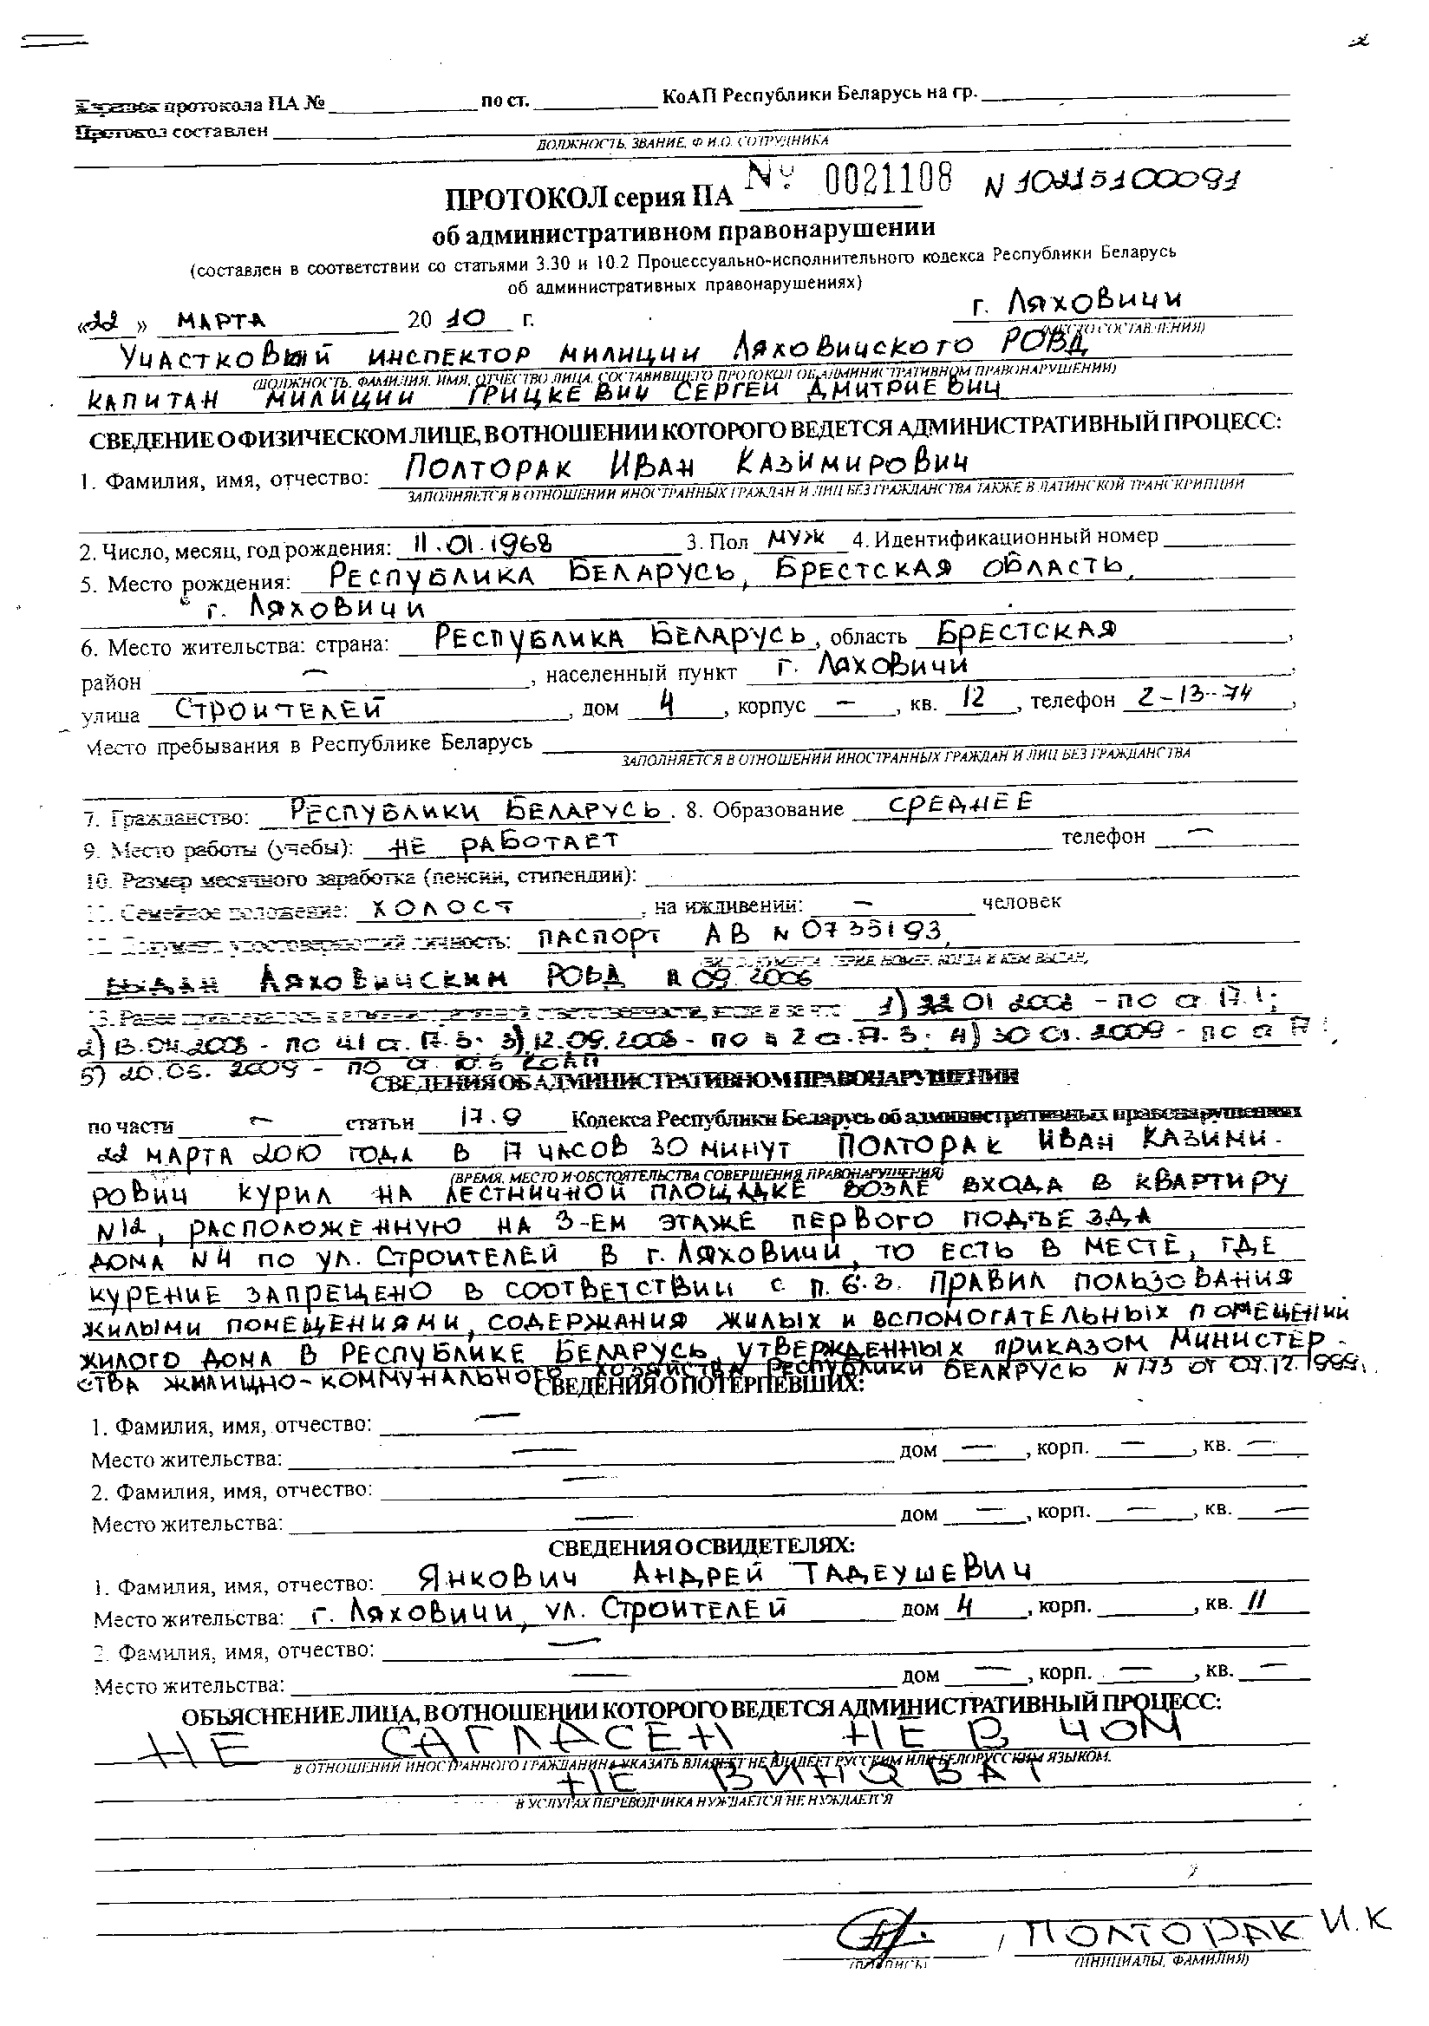 Корешок протокола ПА № по ст. КоАП Республики Беларусь на гр.
Протокол составлен
ДОЛЖНОСТЬ, ЗВАНИЕ, Ф.И.О. СОТРУДНИКА
ПРОТОКОЛ серия ПА № 0021108 N 10215100091
об административном правонарушении
(составлен в соответствии со статьями 3.30 и 10.2 Процессуально-исполнительного кодекса Республики Беларусь
об административных правонарушениях)
«22» МАРТА 2010 г. г. ЛЯХОВИЧИ
(МЕСТО СОСТАВЛЕНИЯ)
УЧАСТКОВЫЙ ИНСПЕКТОР МИЛИЦИИ ЛЯХОВИЧСКОГО РОВД
(ДОЛЖНОСТЬ, ФАМИЛИЯ, ИМЯ, ОТЧЕСТВО ЛИЦА, СОСТАВИВШЕГО ПРОТОКОЛ ОБ АДМИНИСТРАТИВНОМ ПРАВОНАРУШЕНИИ)
КАПИТАН МИЛИЦИИ ГРИЦКЕВИЧ СЕРГЕЙ ДМИТРИЕВИЧ
СВЕДЕНИЕ О ФИЗИЧЕСКОМ ЛИЦЕ, В ОТНОШЕНИИ КОТОРОГО ВЕДЕТСЯ АДМИНИСТРАТИВНЫЙ ПРОЦЕСС:
1. Фамилия, имя, отчество: ПОЛТОРАК ИВАН КАЗИМИРОВИЧ
ЗАПОЛНЯЕТСЯ В ОТНОШЕНИИ ИНОСТРАННЫХ ГРАЖДАН И ЛИЦ БЕЗ ГРАЖДАНСТВА ТАКЖЕ В ЛАТИНСКОЙ ТРАНСКРИПЦИИ
2. Число, месяц, год рождения: 11.01.1968 3. Пол МУЖ 4. Идентификационный номер
5. Место рождения: РЕСПУБЛИКА БЕЛАРУСЬ, БРЕСТСКАЯ ОБЛАСТЬ,
г. ЛЯХОВИЧИ
6. Место жительства: страна: РЕСПУБЛИКА БЕЛАРУСЬ, область БРЕСТСКАЯ,
район —, населенный пункт г. ЛЯХОВИЧИ,
улица СТРОИТЕЛЕЙ, дом 4, корпус —, кв. 12, телефон 2-13-74,
Место пребывания в Республике Беларусь
ЗАПОЛНЯЕТСЯ В ОТНОШЕНИИ ИНОСТРАННЫХ ГРАЖДАН И ЛИЦ БЕЗ ГРАЖДАНСТВА
7. Гражданство: РЕСПУБЛИКИ БЕЛАРУСЬ. 8. Образование СРЕДНЕЕ
9. Место работы (учебы): НЕ РАБОТАЕТ телефон —
10. Размер месячного заработка (пенсии, стипендии):
11. Семейное положение: ХОЛОСТ, на иждивении: — человек
12. Документ, удостоверяющий личность: ПАСПОРТ АВ N 0735193,
ВЫДАН ЛЯХОВИЧСКИМ РОВД 09.2006
1) 22 01 2008 - ПО СТ 17.1;
2) 13.04.2008 - ПО Ч.1 СТ. 17.3. 3) 12.09.2008 - ПО Ч 2 СТ. 17.3. 4) 30 01.2009 - ПО СТ 17
5) 20.05.2009 - ПО СТ 10.5 КОАП
СВЕДЕНИЯ ОБ АДМИНИСТРАТИВНОМ ПРАВОНАРУШЕНИИ
по части — статьи 17.9 Кодекса Республики Беларусь об административных правонарушениях
22 МАРТА 2010 ГОДА В 17 ЧАСОВ 30 МИНУТ ПОЛТОРАК ИВАН КАЗИМИ-
(ВРЕМЯ, МЕСТО И ОБСТОЯТЕЛЬСТВА СОВЕРШЕНИЯ ПРАВОНАРУШЕНИЯ)
РОВИЧ КУРИЛ НА ЛЕСТНИЧНОЙ ПЛОЩАДКЕ ВОЗЛЕ ВХОДА В КВАРТИРУ
N12, РАСПОЛОЖЕННУЮ НА 3-ЕМ ЭТАЖЕ ПЕРВОГО ПОДЪЕЗДА
ДОМА N4 ПО УЛ. СТРОИТЕЛЕЙ В Г. ЛЯХОВИЧИ, ТО ЕСТЬ В МЕСТЕ, ГДЕ
КУРЕНИЕ ЗАПРЕЩЕНО В СООТВЕТСТВИИ С П. 6.3. ПРАВИЛ ПОЛЬЗОВАНИЯ
ЖИЛЫМИ ПОМЕЩЕНИЯМИ, СОДЕРЖАНИЯ ЖИЛЫХ И ВСПОМОГАТЕЛЬНЫХ ПОМЕЩЕНИЙ
ЖИЛОГО ДОМА В РЕСПУБЛИКЕ БЕЛАРУСЬ, УТВЕРЖДЕННЫХ ПРИКАЗОМ МИНИСТЕР-
СТВА ЖИЛИЩНО-КОММУНАЛЬНОГО ХОЗЯЙСТВА РЕСПУБЛИКИ БЕЛАРУСЬ N 173 ОТ 07.12.1999.
СВЕДЕНИЯ О ПОТЕРПЕВШИХ:
1. Фамилия, имя, отчество: —
Место жительства: — дом —, корп. —, кв. —
2. Фамилия, имя, отчество: —
Место жительства: — дом —, корп. —, кв. —
СВЕДЕНИЯ О СВИДЕТЕЛЯХ:
1. Фамилия, имя, отчество: ЯНКОВИЧ АНДРЕЙ ТАДЕУШЕВИЧ
Место жительства: г. ЛЯХОВИЧИ, УЛ. СТРОИТЕЛЕЙ дом 4, корп. , кв. 11
2. Фамилия, имя, отчество: —
Место жительства: — дом —, корп. —, кв. —
ОБЪЯСНЕНИЕ ЛИЦА, В ОТНОШЕНИИ КОТОРОГО ВЕДЕТСЯ АДМИНИСТРАТИВНЫЙ ПРОЦЕСС:
НЕ САГЛАСЕН, НЕ В ЧОМ
В ОТНОШЕНИИ ИНОСТРАННОГО ГРАЖДАНИНА УКАЗАТЬ ВЛАДЕЕТ НЕ ВЛАДЕЕТ РУССКИМ ИЛИ БЕЛОРУССКИМ ЯЗЫКОМ.
НЕ ВИНОВАТ
В УСЛУГАХ ПЕРЕВОДЧИКА НУЖДАЕТСЯ НЕ НУЖДАЕТСЯ
/ ПОЛТОРАК И.К
(ПОДПИСЬ) (ИНИЦИАЛЫ, ФАМИЛИЯ)